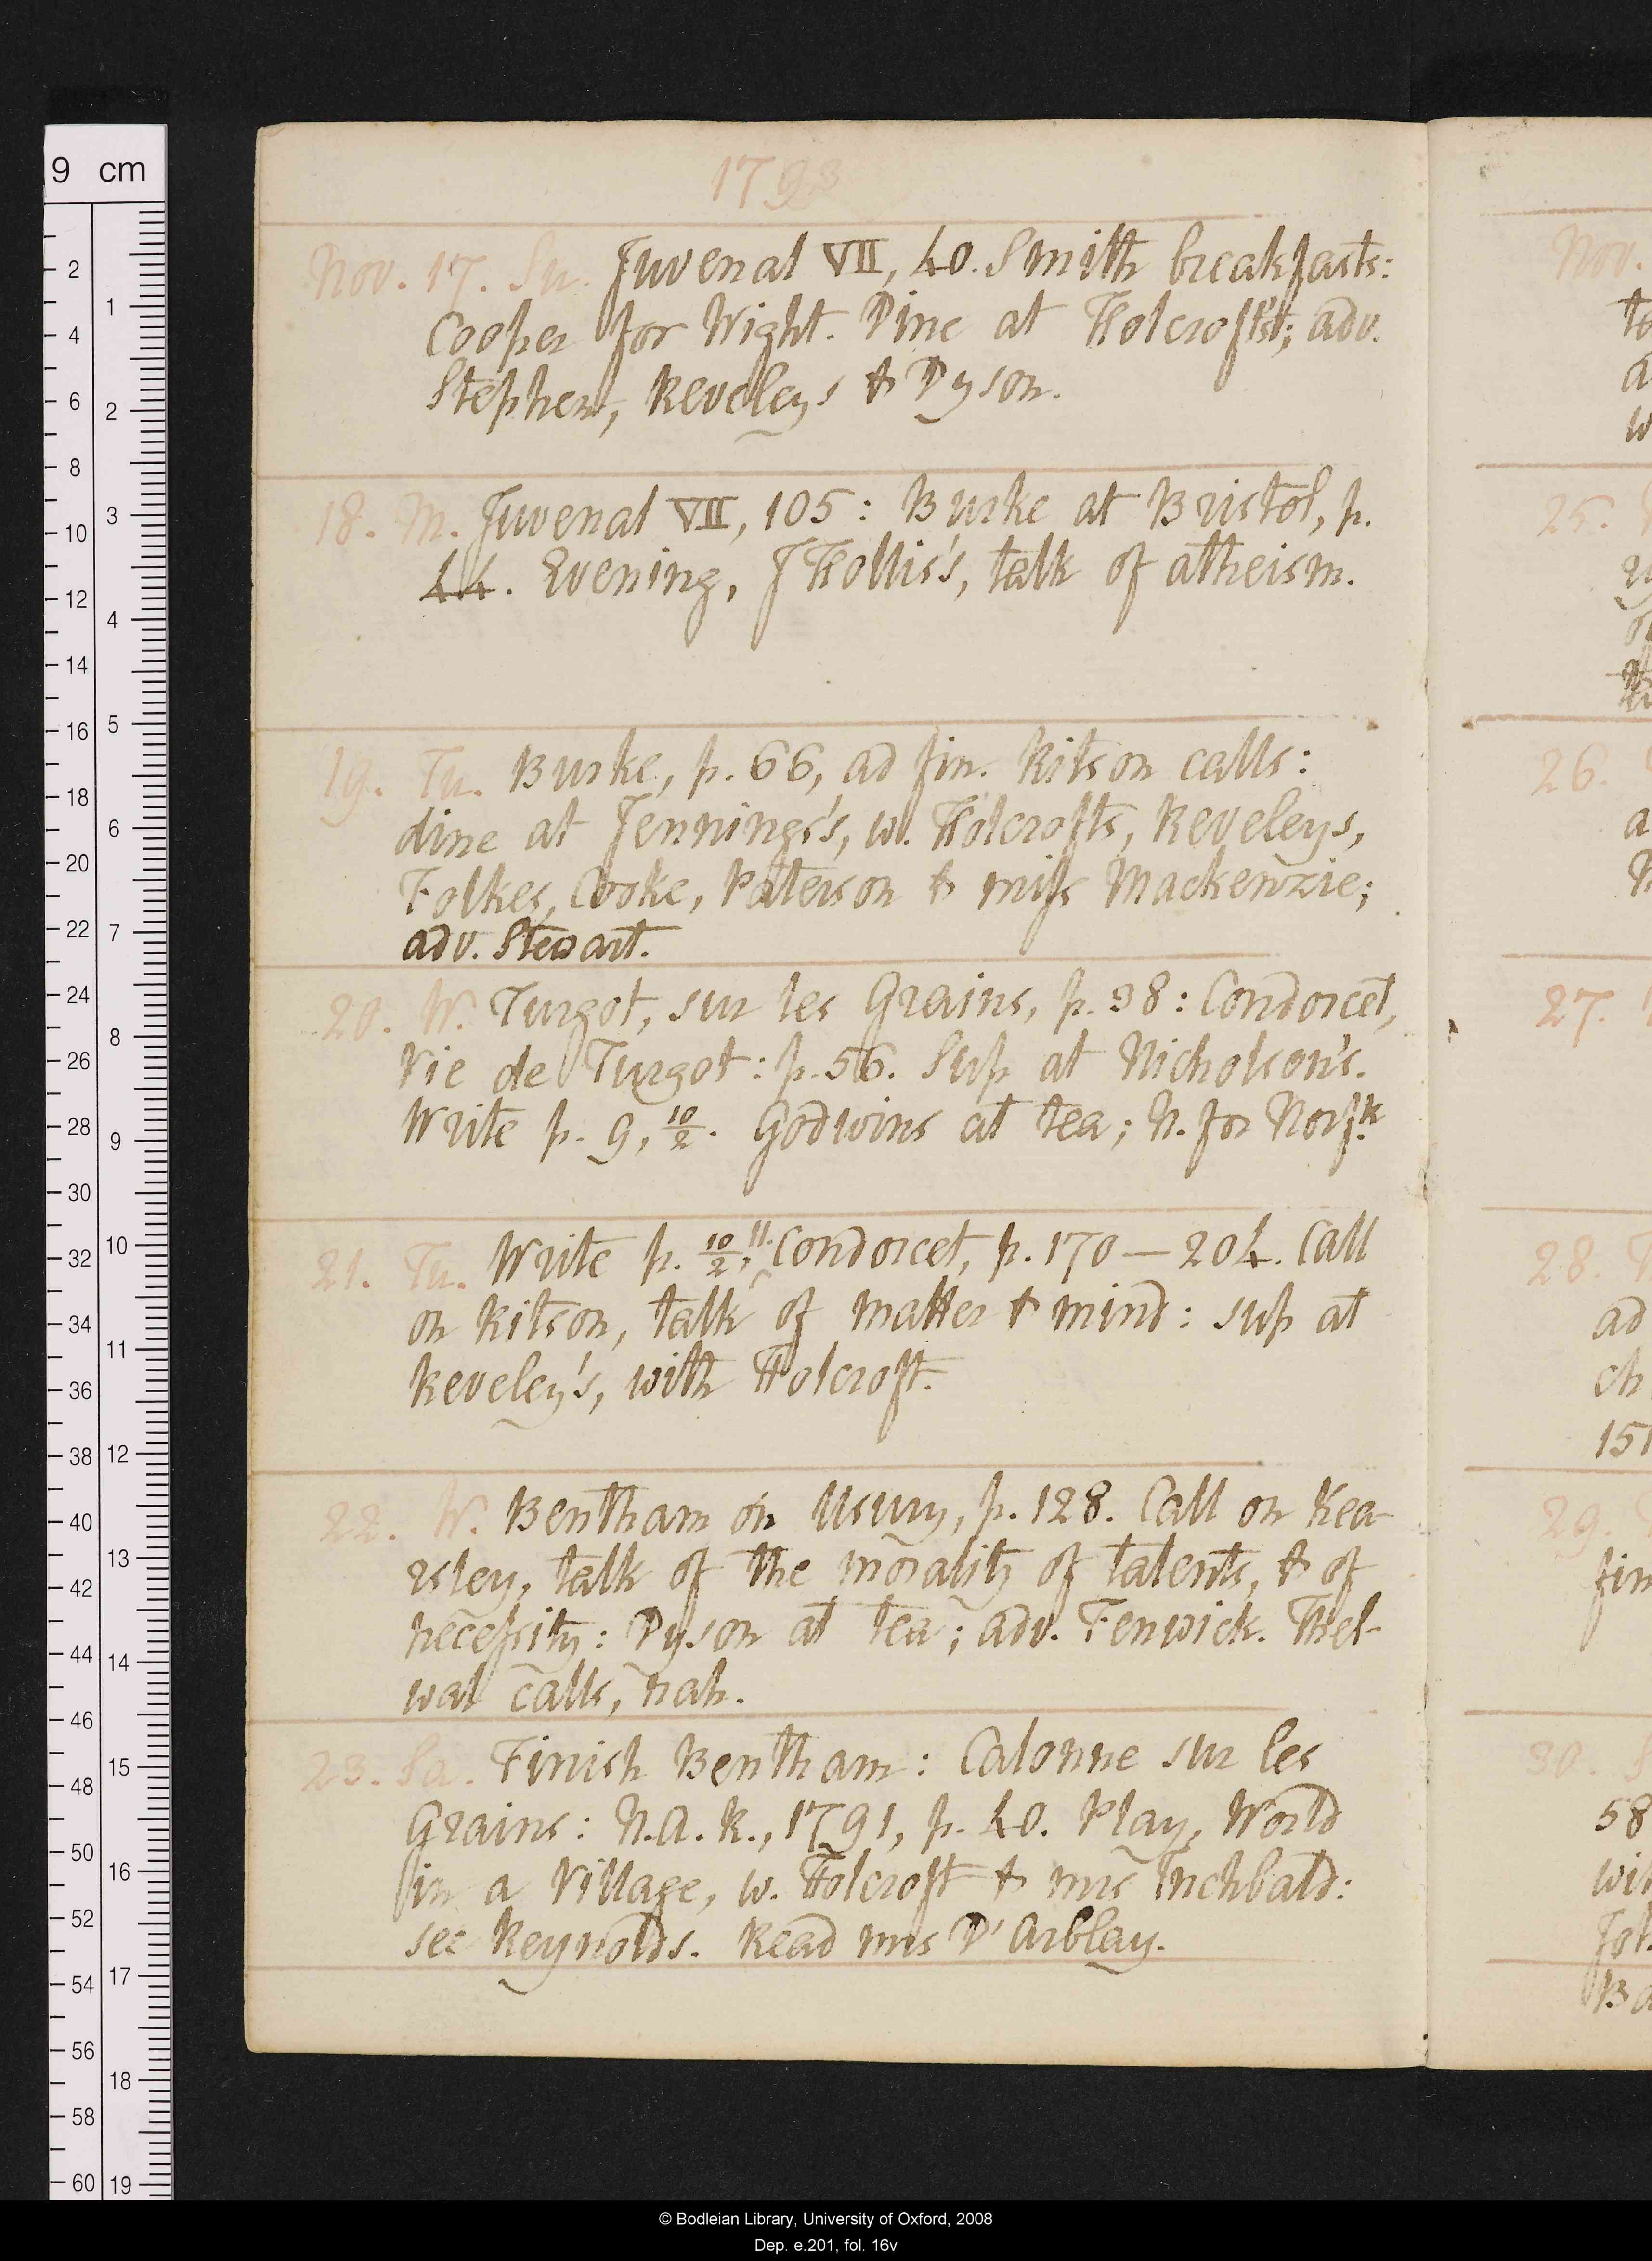 1793
Nov. 17. Su. Juvenal VII, 40. Smith breakfasts:
Cooper for Wight. Dine at Holcroft's; adv.
Stephens, Reveleys & Dyson.
18. M. Juvenal VII, 105: Burke at Bristol, p.
44. Evening, J Hollis's, talk of atheism.
19. Tu. Burke, p. 66, ad fin. Ritson calls:
dine at Jennings's, w. Holcrofts, Reveleys,
Folkes, Cooke, Paterson & miss Mackenzie;
adv. Stewart.
20. W. Turgot, sur les Grains, p. 38: Condorcet,
Vie de Turgot: p. 56. Sup at Nicholson's.
Write p. 9, 10/2. Godwins at tea; N. for Norfk
21. Tu. Write p. 10/2, 11. Condorcet, p. 170—204. Call
on Ritson, talk of matter & mind: sup at
Reveley's, with Holcroft.
22. W. Bentham on Usury, p. 128. Call on Kea-
rsley, talk of the morality of talents, & of
necessity: Dyson at tea; adv. Fenwick. Thel-
wal calls, nah.
23. Sa. Finish Bentham: Calonne sur les
Grains: N.A.R., 1791, p. 40. Play, World
in a Village, w. Holcroft & mrs Inchbald:
see Reynolds. Read mrs D'Arblay.
Nov.
25.
26.
27.
28.
ad
ch
151
29.
fin
30. S
58
wit
9 cm
2 4 6 8 10 12 14 16 18 20 22 24 26 28 30 32 34 36 38 40 42 44 46 48 50 52 54 56 58 60
1 2 3 4 5 6 7 8 9 10 11 12 13 14 15 16 17 18 19
© Bodleian Library, University of Oxford, 2008
Dep. e.201, fol. 16v